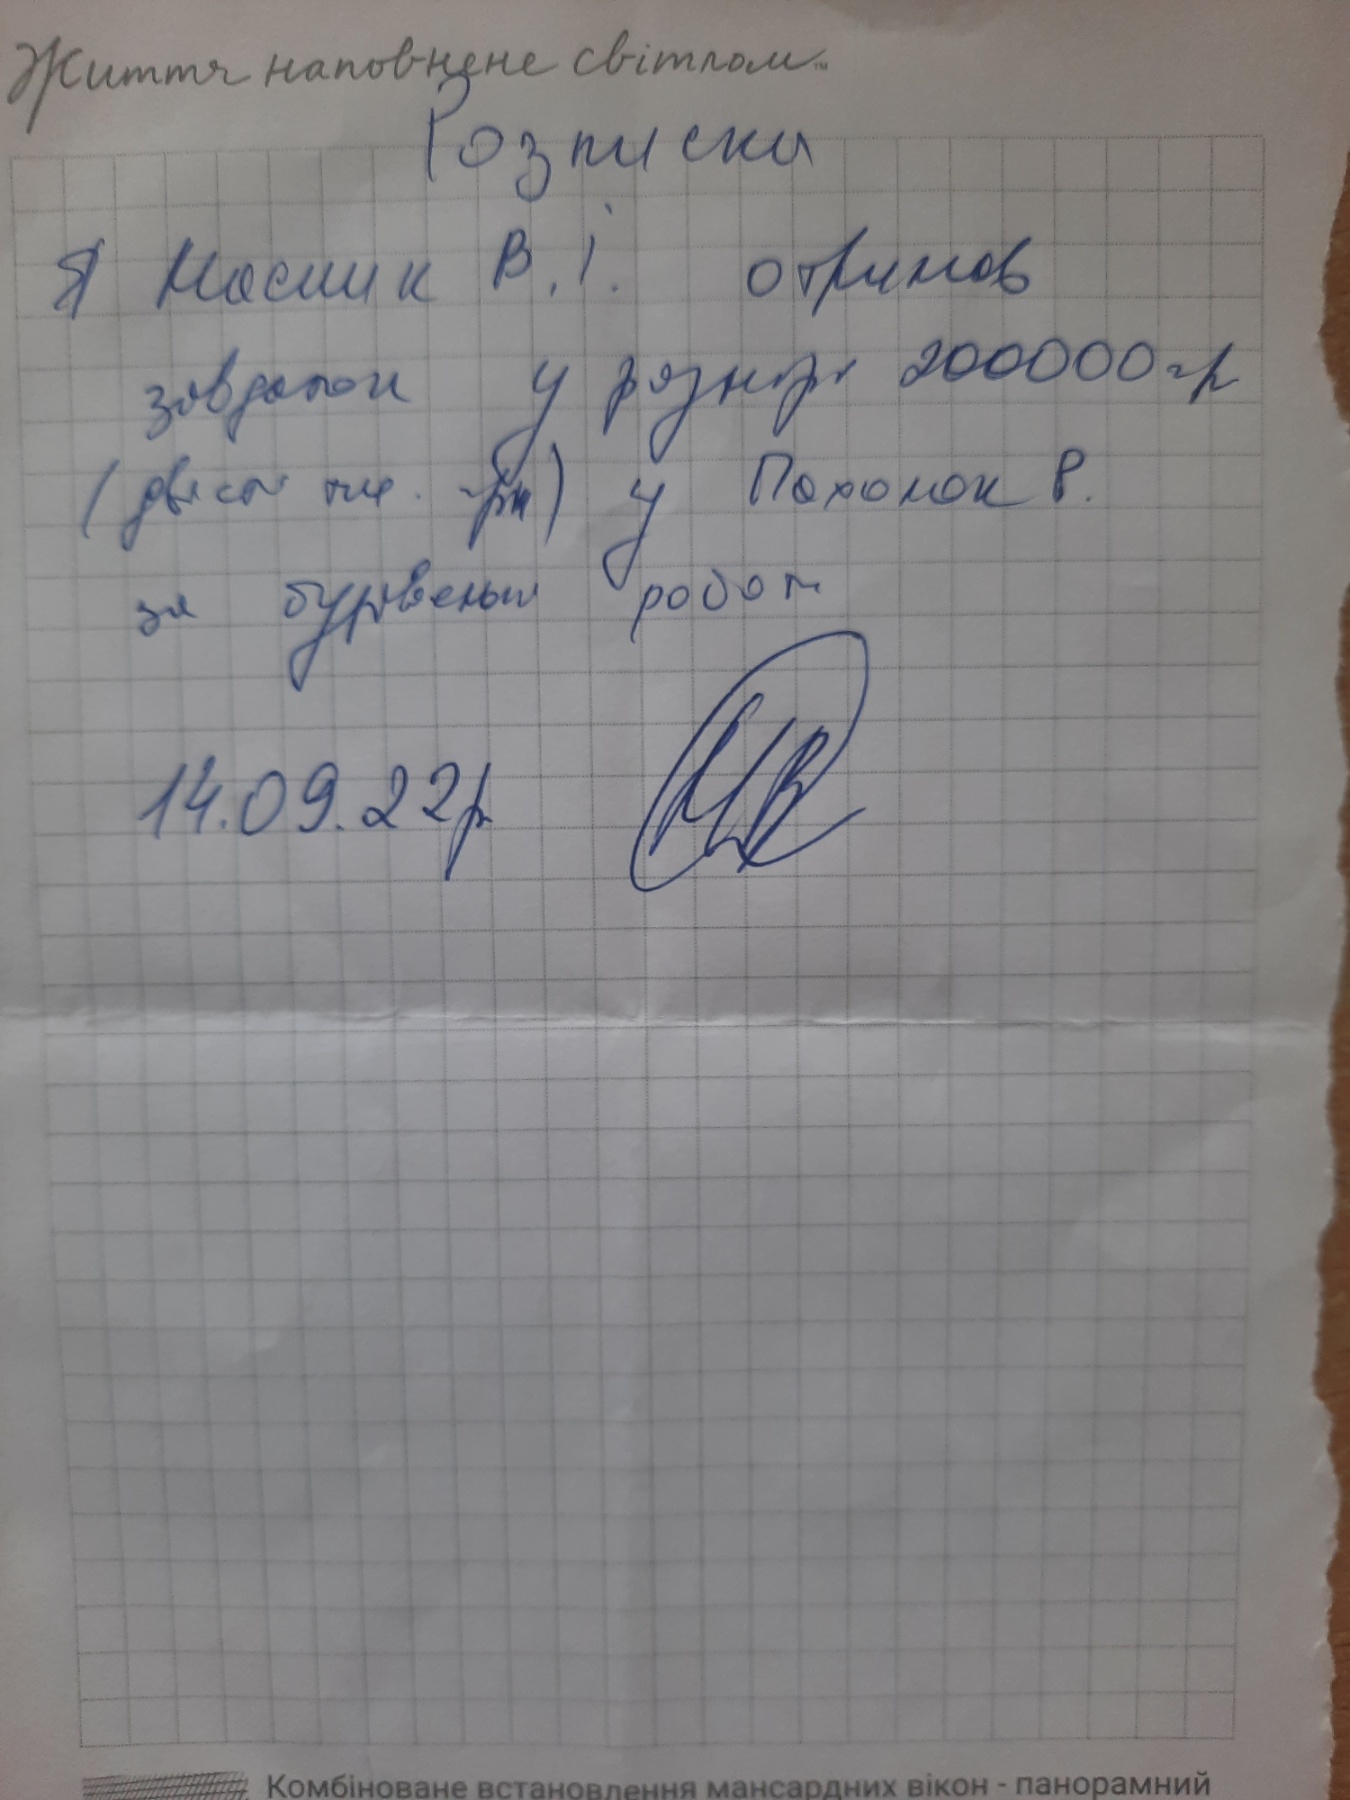 Життя наповнене світлом™
Розписка
Я Масник В.І. отримав
завдаток у розмірі 200000 гр
(двісті тис. грн) у Пахолок Р.
за будівельні роботи
14.09.22р
Комбіноване встановлення мансардних вікон - панорамний